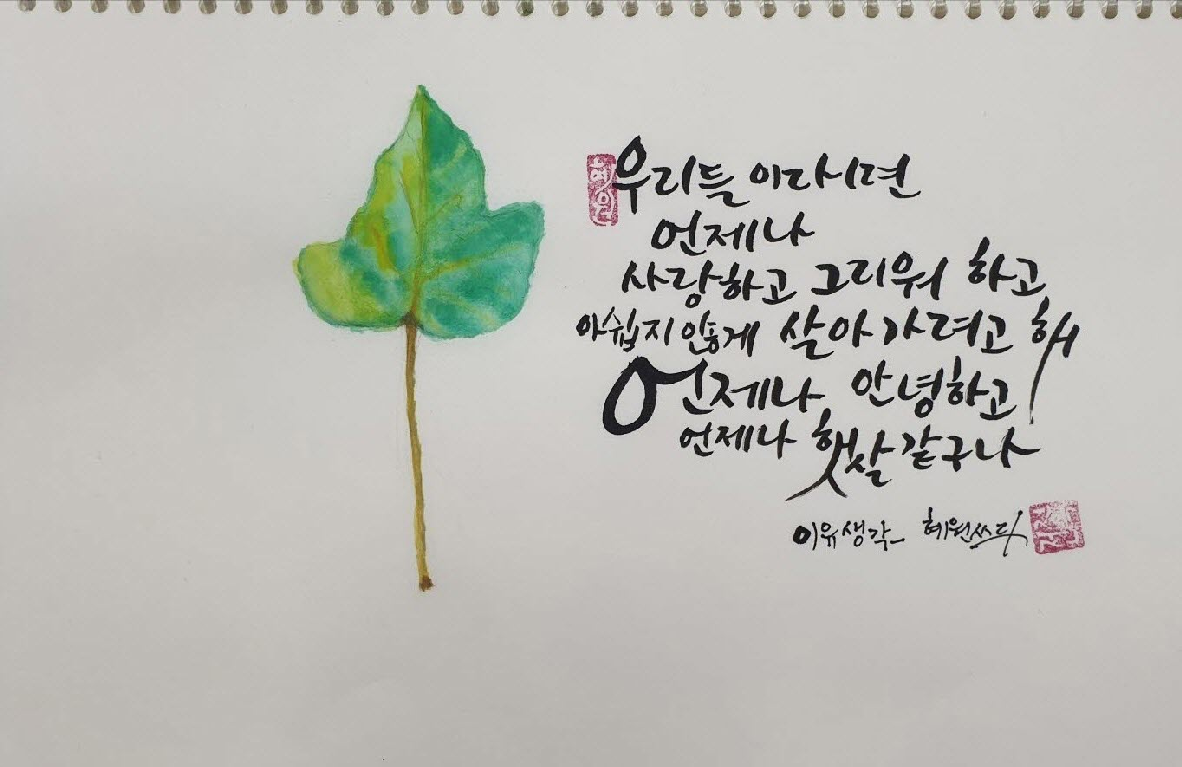 우리들 이다시면
언제나
사랑하고 그리워 하고
아쉽지 않게 살아가려고 해
언제나 안녕하고
언제나 햇살 같구나
이유생각_ 혜원쓰다